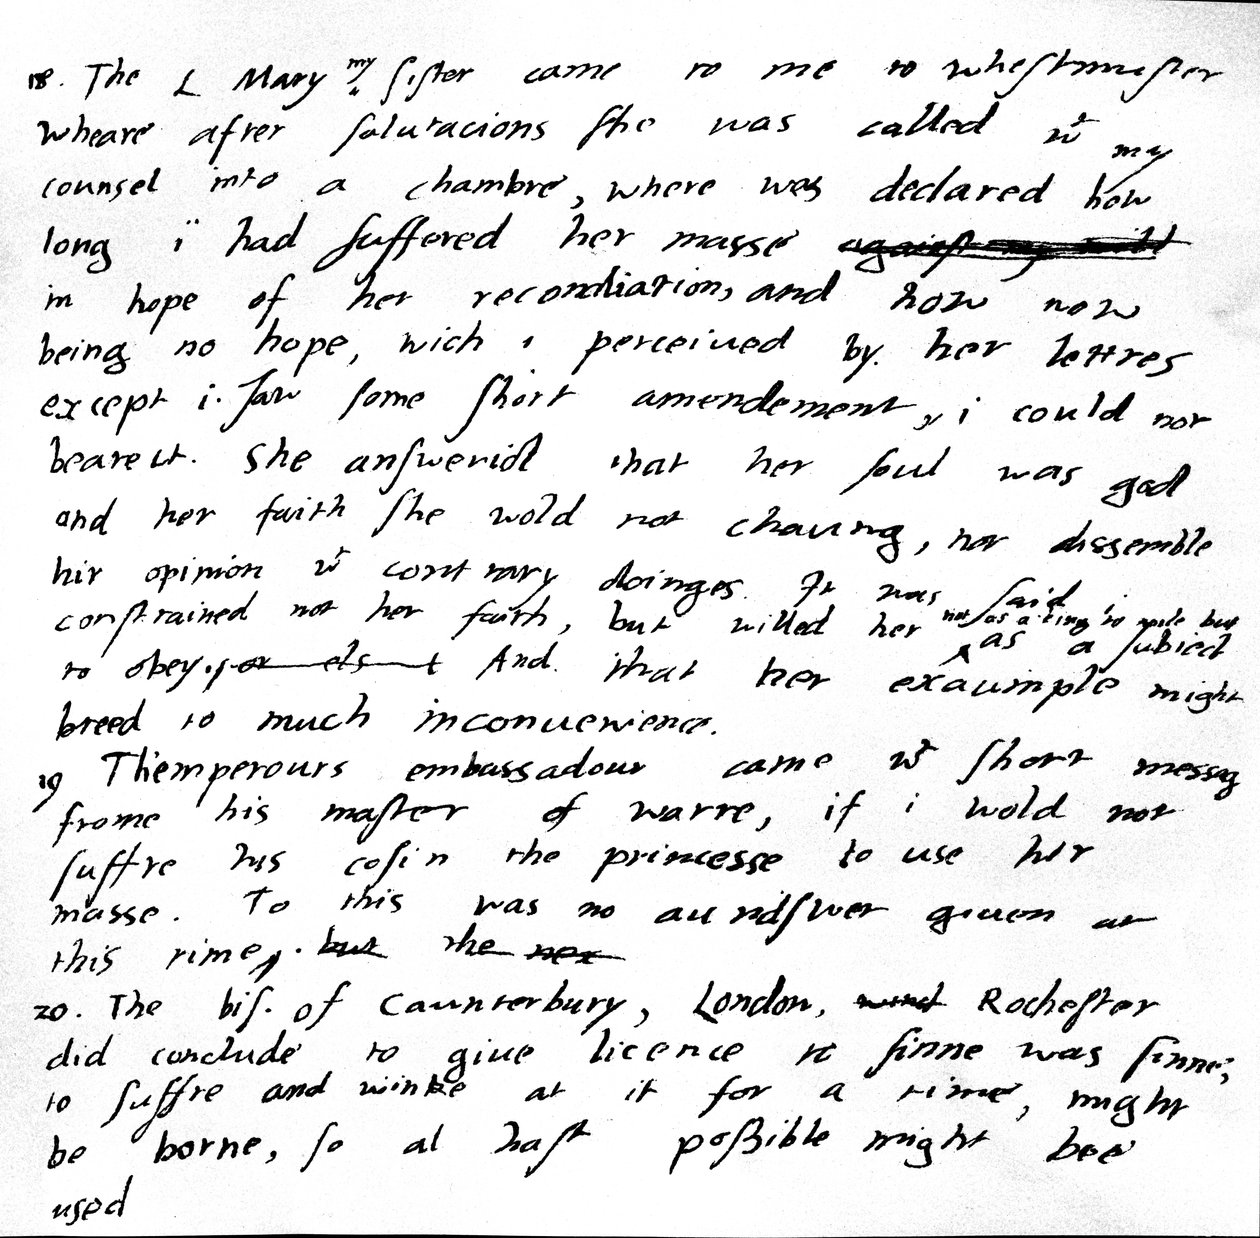 18. The L Mary my sister came to me to whestmuster
wheare after salutacions she was called wt my
counsel into a chambre, where was declared how
long ï had suffered her masse against my will
in hope of her reconciliation, and how now
being no hope, wich i perceiued by her lettres
except i saw some short amendement, i could not
beare it. She answerid that her soul was god
and her faith she wold not chaung, nor dissemble
hir opinion wt contrary doinges. It was said i
constrained not her faith, but willed her not as a king to rule but
to obey. or els And that her exaumple might as a subiect
breed to much inconuenience.
19 Themperours embassadour came wt short messag
frome his master of warre, if i wold not
suffre his cosin the princesse to use hir
masse. To this was no aundswer giuen at
this time, but the nex
20. The bis. of Caunterbury, London, Rochester
did conclude to giue licence to sinne was sinne;
to suffre and winke at it for a time, might
be borne, so al hast possible might bee
used